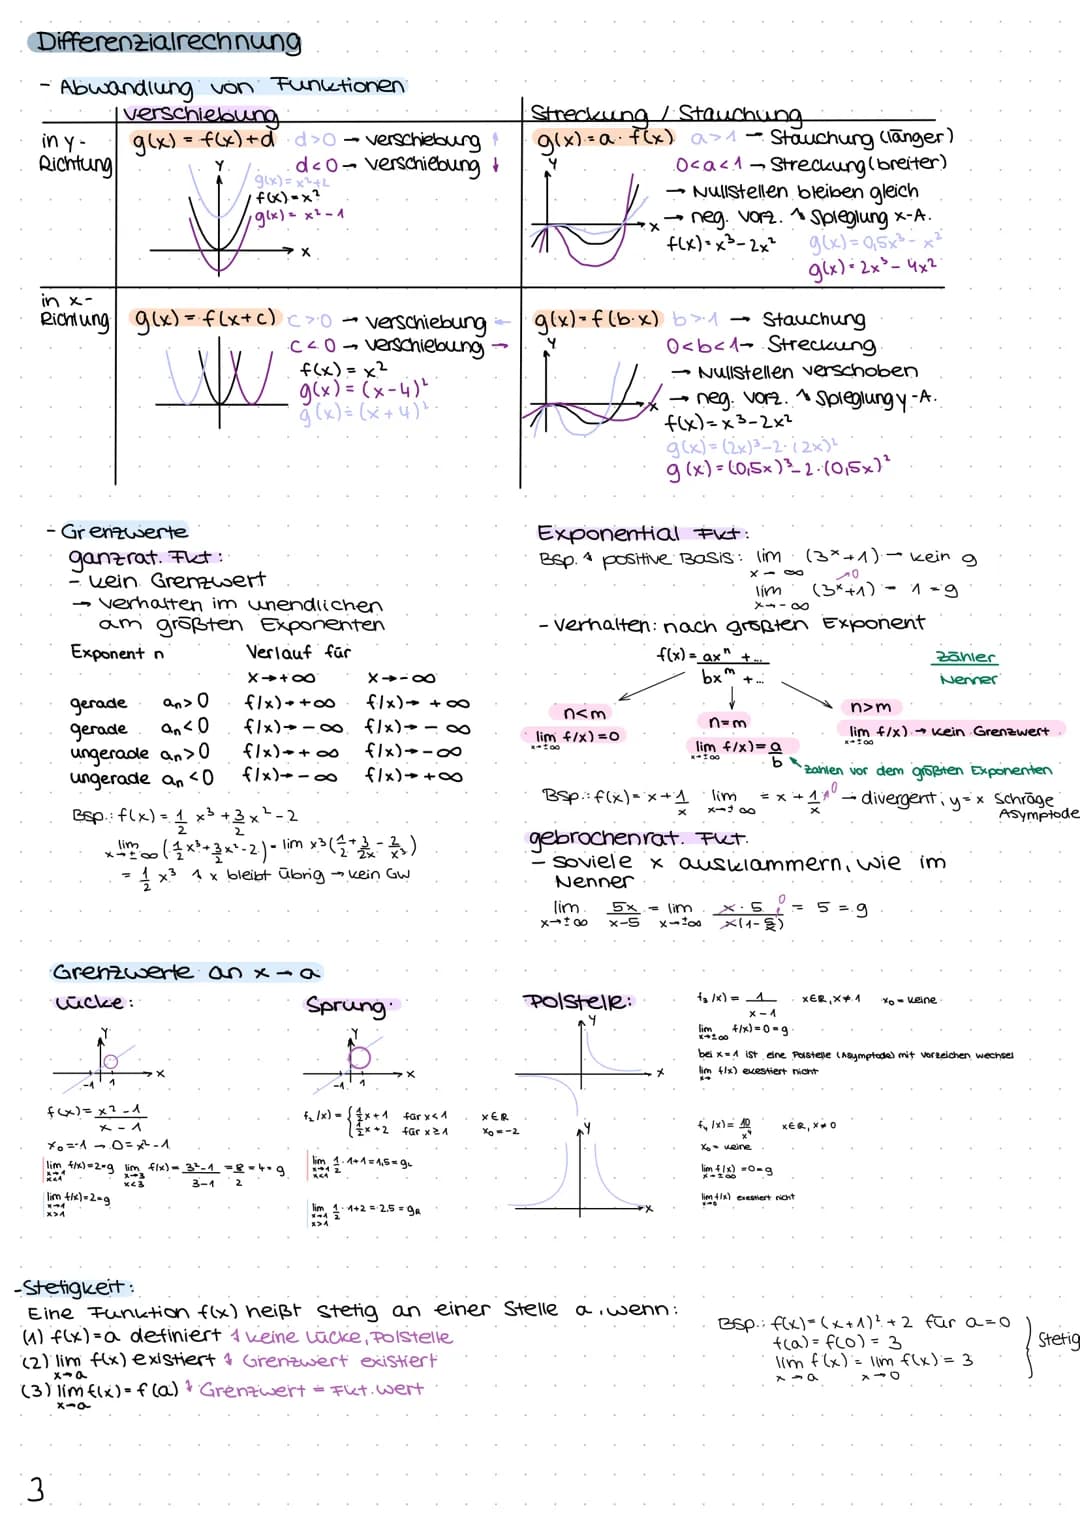 Differenzialrechnung
- Abwandlung von Funktionen
verschiebung
Streckung / Stauchung
in y-Richtung
g(x) = f(x)+d d>0 → verschiebung ↑
d<0 → verschiebung ↓
g(x) = x²+2
f(x) = x²
g(x) = x²-1
y
x
g(x) = a · f(x) a>1 → Stauchung (länger)
0<a<1 → Streckung (breiter)
→ Nullstellen bleiben gleich
→ neg. vorz. ↑ Spieglung x-A.
f(x) = x³-2x² g(x) = 0,5x³ - x²
g(x) = 2x³ - 4x²
y
x
in x-Richtung
g(x) = f(x+c) c>0 → verschiebung ←
c<0 → verschiebung →
f(x) = x²
g(x) = (x-4)²
g(x) = (x+4)²
g(x) = f(b·x) b>1 → Stauchung
0<b<1 → Streckung
→ Nullstellen verschoben
→ neg. vorz. ↑ Spieglung y-A.
f(x) = x³-2x²
g(x) = (2x)³-2·(2x)²
g(x) = (0,5x)³-2·(0,5x)²
y
x
- Grenzwerte
ganzrat. Fkt:
- kein Grenzwert
→ verhalten im unendlichen
am größten Exponenten
Exponent n Verlauf für
x→+∞ x→-∞
gerade an>0 f(x)→+∞ f(x)→+∞
gerade an<0 f(x)→-∞ f(x)→-∞
ungerade an>0 f(x)→+∞ f(x)→-∞
ungerade an<0 f(x)→-∞ f(x)→+∞
Bsp.: f(x) = 1/2 x³ + 3/2 x² - 2
lim x→±∞ (1/2 x³ + 3/2 x² - 2) = lim x³(1/2 + 3/2x - 2/x³)
= 1/2 x³ ↑ x bleibt übrig → kein GW
Exponential Fkt:
Bsp. ↑ positive Basis: lim x→∞ (3ˣ+1) → kein g
lim x→-∞ (3ˣ+1) → 1 = g
- verhalten: nach größten Exponent
f(x) = axⁿ + ... / bxᵐ + ...
Zähler
Nenner
n<m
lim x→±∞ f(x) = 0
n=m
lim x→±∞ f(x) = a/b
n>m
lim x→±∞ f(x) → kein Grenzwert
zahlen vor dem größten Exponenten
Bsp.: f(x) = x + 1/x lim x→±∞ = x + 1/x → 0 → divergent, y=x Schräge Asymptode
gebrochenrat. Fkt.
- soviele x ausklammern, wie im
Nenner
lim x→±∞ 5x/x-5 = lim x→±∞ x·5/x(1-5/x) 0 = 5 = g
Grenzwerte an x→a
Lücke:
Sprung:
Polstelle:
y
x
-1 1
y
x
-1 1
y
x
f(x) = x²-1 / x-1
x₀ = -1 → 0 = x²-1
lim x→1 x<1 f(x) = 2 = g lim x→3 x<3 f(x) = 3²-1/3-1 = 8/2 = 4 = g
lim x→1 x>1 f(x) = 2 = g
f₂(x) = { 1/2x+1 für x<1 x∈R
1/2x+2 für x≥1 x₀ = -2
lim x→1 x<1 1/2 · 1+1 = 1,5 = gL
lim x→1 x>1 1/2 · 1+2 = 2,5 = gR
f₃(x) = 1/x-1 x∈R, x≠1 x₀ = keine
lim x→±∞ f(x) = 0 = g
bei x=1 ist eine Polstelle (Asymptode) mit vorzeichen wechsel
lim x→ f(x) exestiert nicht
y
x
f₄(x) = 10/x⁴ x∈R, x≠0
x₀ = keine
lim x→±∞ f(x) = 0 = g
lim x→0 f(x) exestiert nicht
- Stetigkeit:
Eine Funktion f(x) heißt stetig an einer Stelle a, wenn:
(1) f(x) = a definiert ↑ keine Lücke, Polstelle
(2) lim x→a f(x) existiert ↑ Grenzwert existiert
(3) lim x→a f(x) = f(a) ↑ Grenzwert = Fkt. wert
Bsp.: f(x) = (x+1)² + 2 für a=0
f(a) = f(0) = 3
lim x→a f(x) = lim x→0 f(x) = 3
} Stetig
3